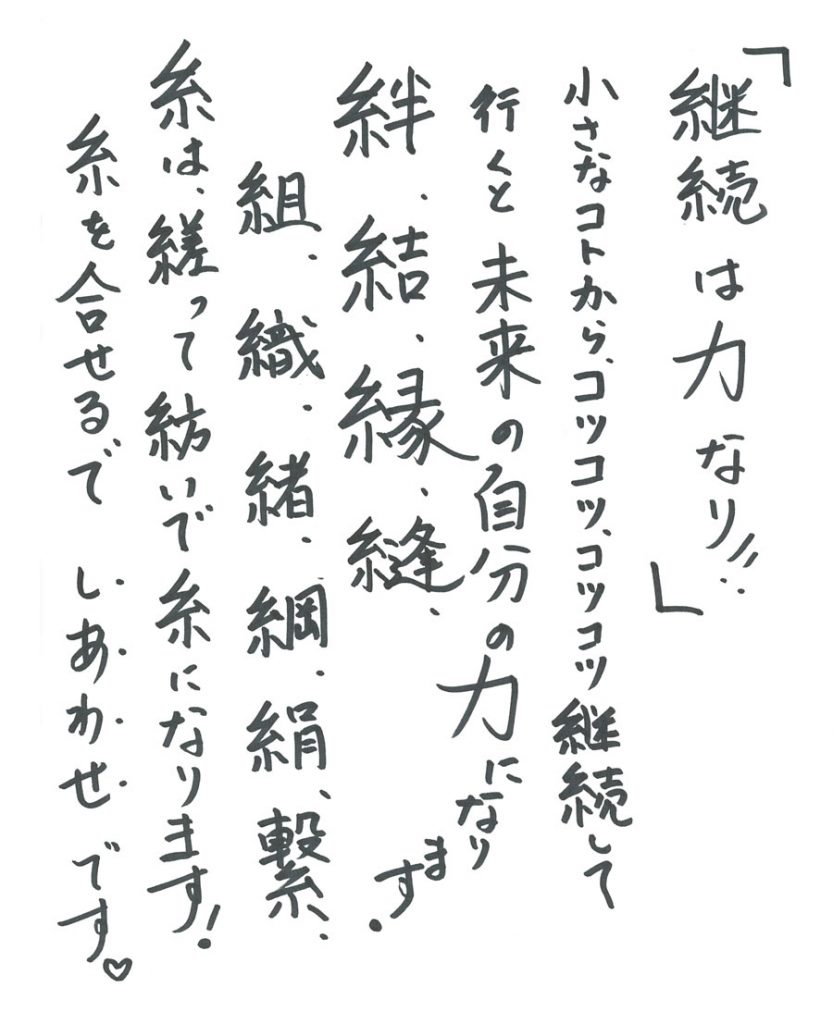 「継続は力なり!!」
小さなコトから、コツコツ、コツコツ継続して
行くと未来の自分の力になります.
絆、結、縁、縫、
組、織、緒、綱、絹、繋、
糸は、縒って紡いで糸になります!
糸を合せるで しあわせです♡